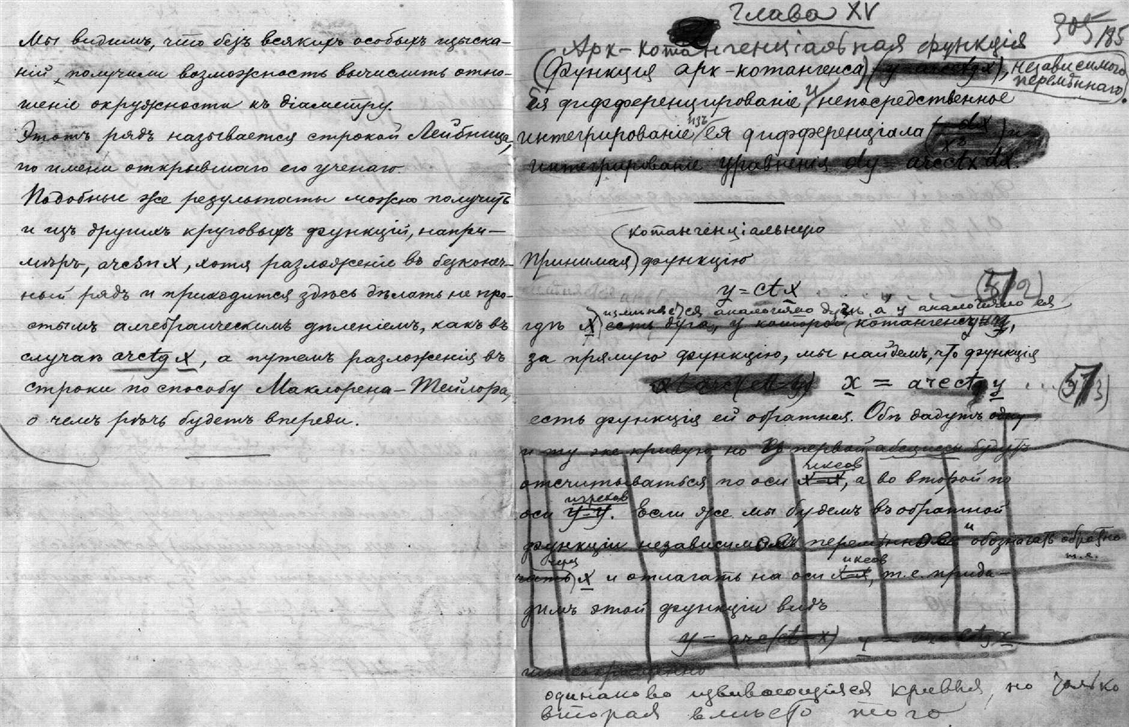 Мы видимъ, что безъ всякихъ особыхъ изыска-
ній, получили возможность вычислить отно-
шеніе окружности къ діаметру.
Этотъ рядъ называется строкой Лейбница,
по имени открывшаго его ученаго.
Подобные же результаты можно получить
и изъ другихъ круговыхъ функцій, напри-
мѣръ, arcsn x, хотя разложеніе въ безконеч-
ный рядъ и приходится здѣсь дѣлать не про-
стымъ алгебраическимъ дѣленіемъ, какъ въ
случаѣ arctg x, а путемъ разложенія въ
строки по способу Маклорена-Тейлора,
о чемъ рѣчь будетъ впереди.
Глава XV
305/
Арк-котангенціальная функція
(Функція арк-котангенса) (y = arcctg x), независимого
переменнаго.
Ея дифференцированіе и непосредственное
интегрированіе изъ ея дифференціала
интегрированіе уравненія dy arcctx dx.
котангенціальную
Принимая функцію
y = ct x
измѣняется аналогично дугѣ, а y аналогично ея
гдѣ x есть дуга, у которой котангенсъ y,
за прямую функцію, мы найдемъ, что функція
x = arcct y ...
есть функція ей обратная. Обѣ дадутъ одну
и ту же кривую но въ первой абсциссы будутъ
иксов
отсчитываться по оси x-x, а во второй по
игреков
оси y-y. Если же мы будемъ въ обратной
функціи обозначать обратно
т.е.
через иксов
x и отлагать на оси x-x, т.е. прида-
димъ этой функціи видъ
y = arc(ct = x) y = arcctg x
одинаково извивающіяся кривыя, но только
вторая вместо того